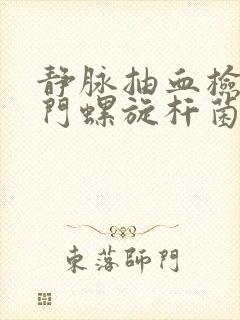 静脉抽血检
门螺旋杆菌
東落師門